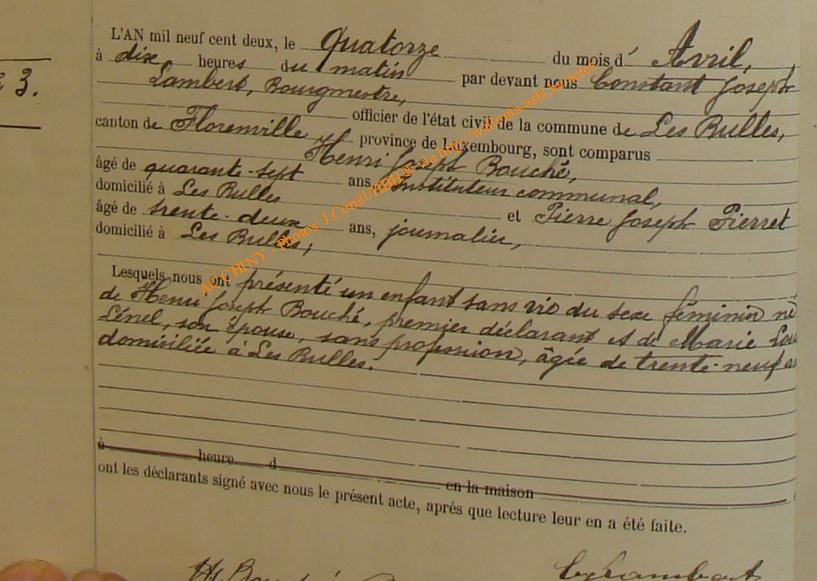 3.
L'AN mil neuf cent deux, le quatorze du mois d' Avril,
à dix heures du matin par devant nous Constant Joseph
Lambert, Bourgmestre,
officier de l'état civil de la commune de Les Bulles,
canton de Florenville, province de Luxembourg, sont comparus
Henri Joseph Bouché,
âgé de quarante-sept ans, Instituteur communal,
domicilié à Les Bulles et Pierre Joseph Pierret
âgé de trente-deux ans, journalier,
domicilié à Les Bulles,
Lesquels nous ont présenté un enfant sans vie du sexe féminin né
de Henri Joseph Bouché, premier déclarant et de Marie
Lénel, son épouse, sans profession, âgée de trente-neuf
domiciliée à Les Bulles.
à heure d en la maison
ont les déclarants signé avec nous le présent acte, après que lecture leur en a été faite.
ARCHINY - Photos J.Cornil